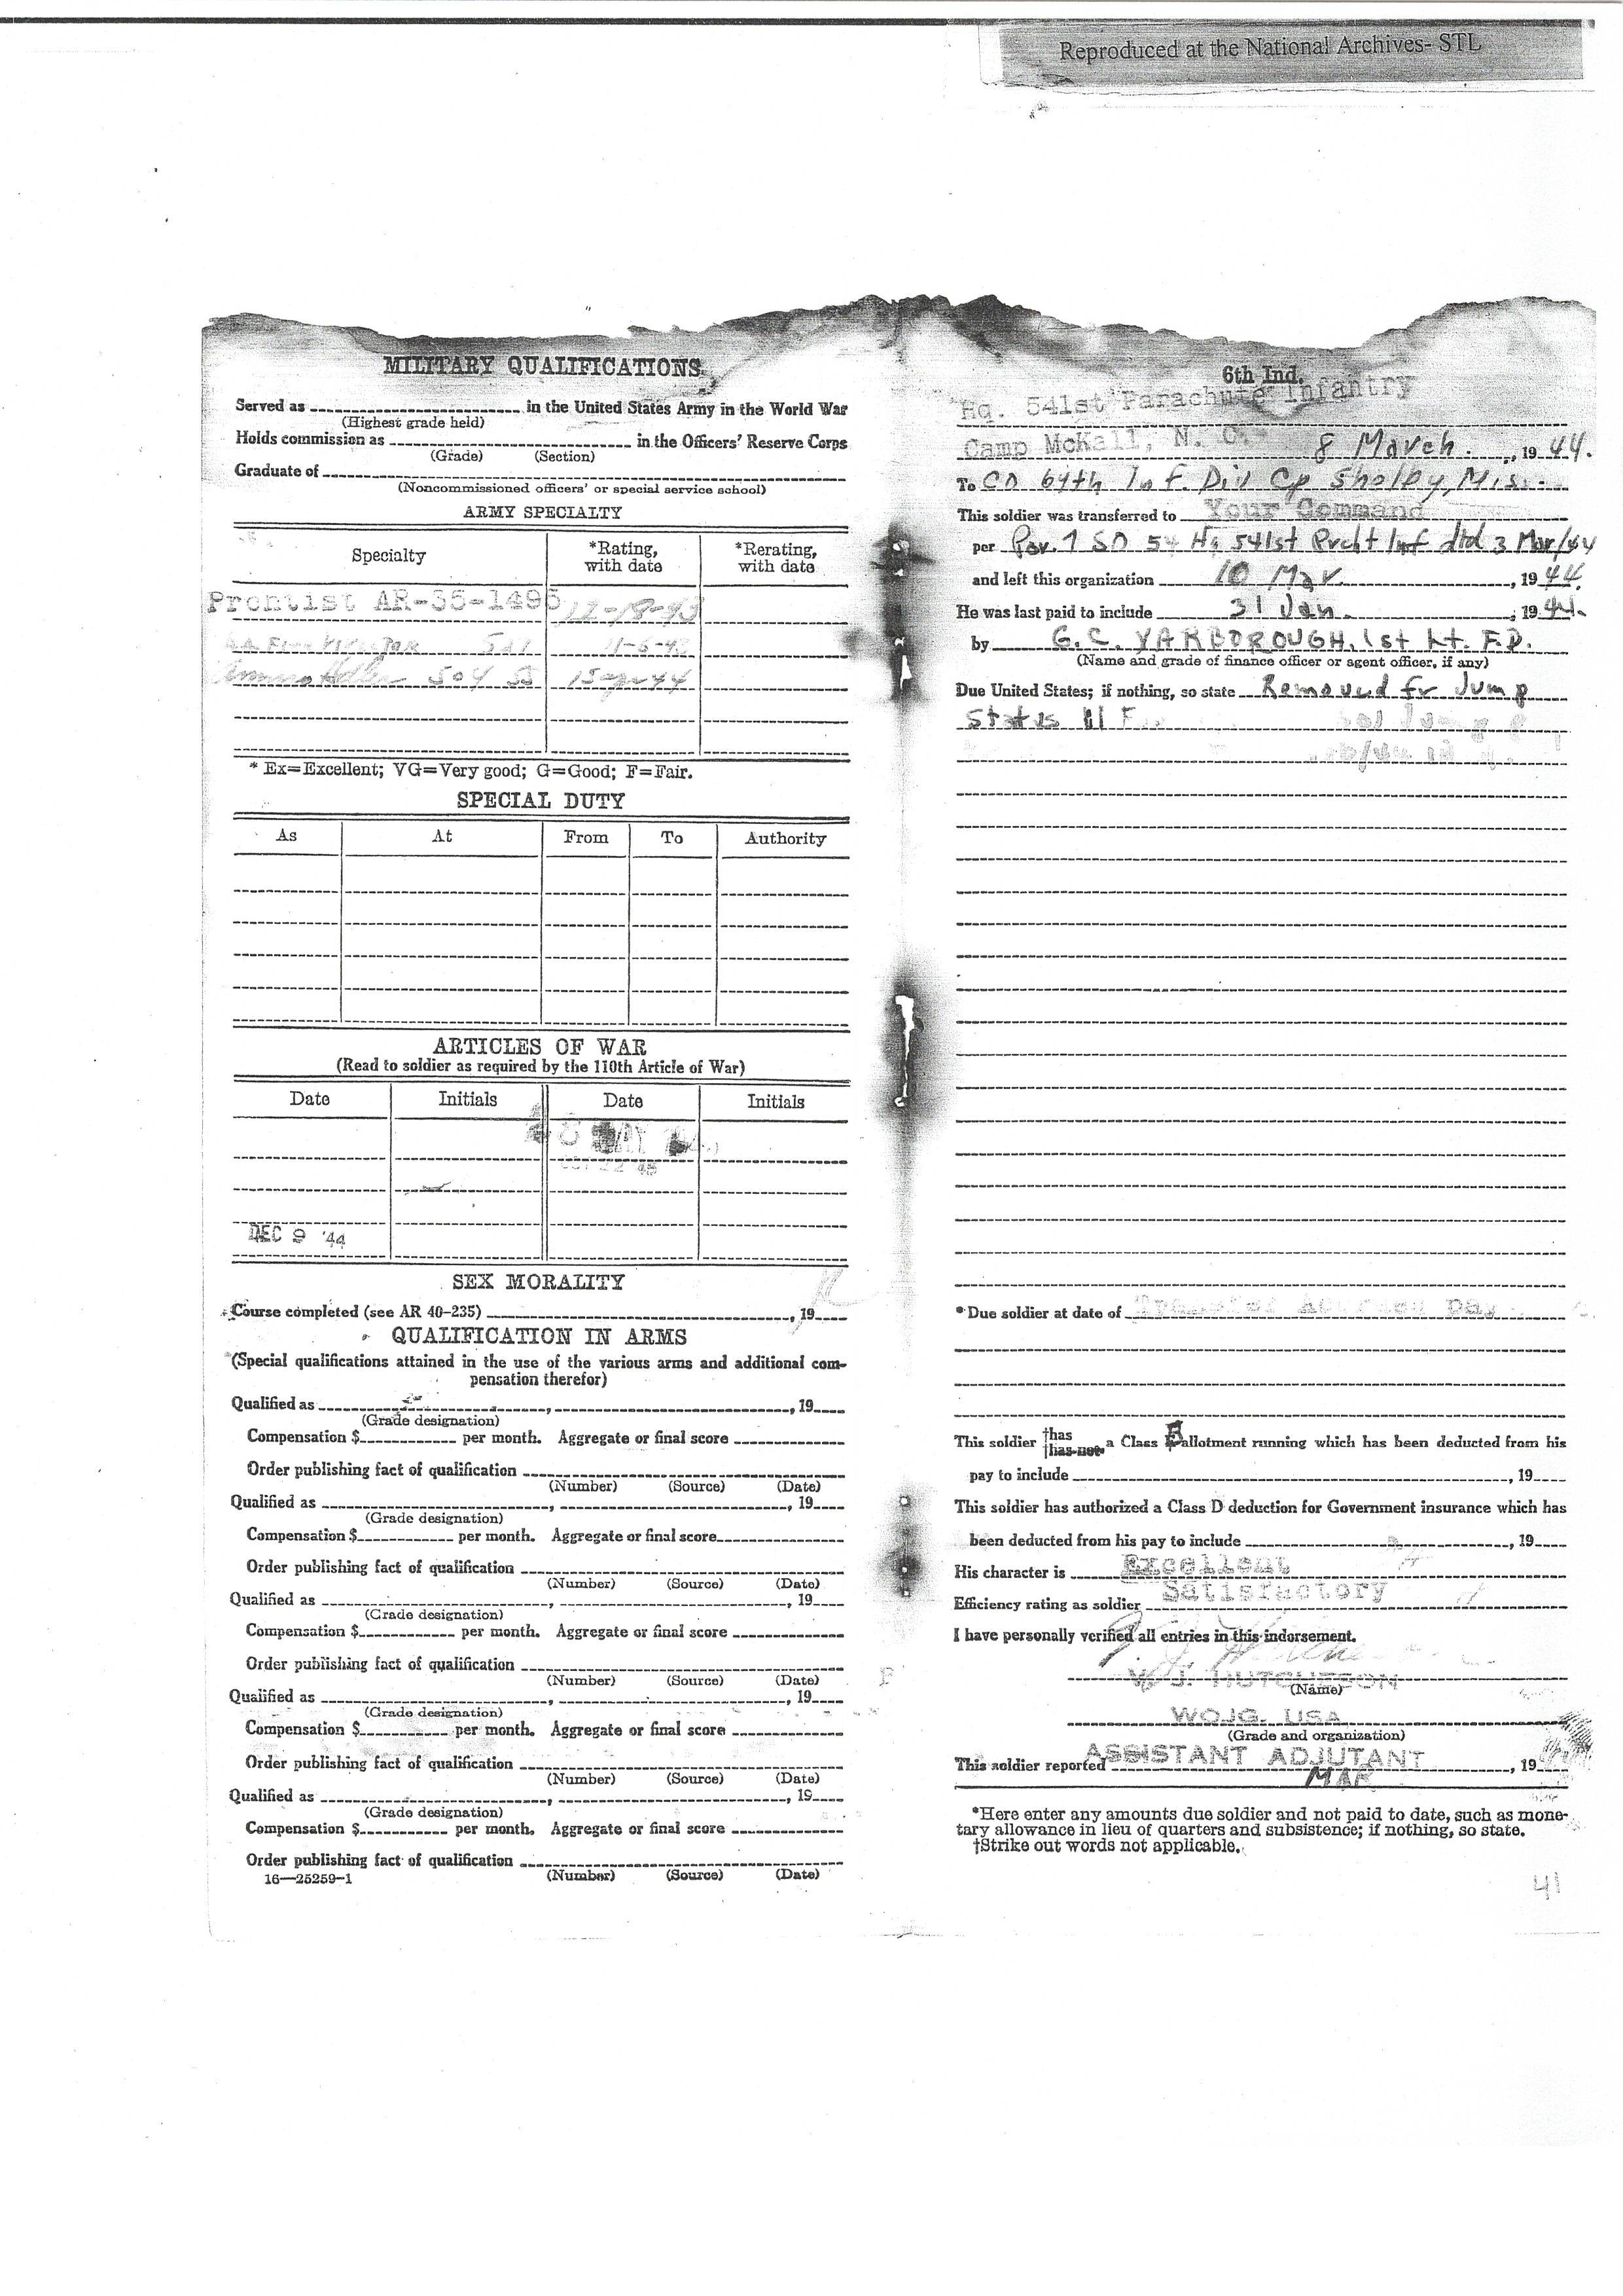 Reproduced at the National Archives- STL
MILITARY QUALIFICATIONS
Served as in the United States Army in the World War
(Highest grade held)
Holds commission as in the Officers' Reserve Corps
(Grade) (Section)
Graduate of
(Noncommissioned officers' or special service school)
ARMY SPECIALTY
Specialty *Rating, with date *Rerating, with date
AR-35-1495 12-18-43
504 15 44
* Ex=Excellent; VG=Very good; G=Good; F=Fair.
SPECIAL DUTY
As At From To Authority
ARTICLES OF WAR
(Read to soldier as required by the 110th Article of War)
Date Initials Date Initials
DEC 9 '44
SEX MORALITY
Course completed (see AR 40-235) , 19
QUALIFICATION IN ARMS
(Special qualifications attained in the use of the various arms and additional com-
pensation therefor)
Qualified as , , 19
(Grade designation)
Compensation $ per month. Aggregate or final score
Order publishing fact of qualification
(Number) (Source) (Date)
Qualified as , , 19
(Grade designation)
Compensation $ per month. Aggregate or final score
Order publishing fact of qualification
(Number) (Source) (Date)
Qualified as , , 19
(Grade designation)
Compensation $ per month. Aggregate or final score
Order publishing fact of qualification
(Number) (Source) (Date)
Qualified as , , 19
(Grade designation)
Compensation $ per month. Aggregate or final score
Order publishing fact of qualification
(Number) (Source) (Date)
Qualified as , , 19
(Grade designation)
Compensation $ per month. Aggregate or final score
Order publishing fact of qualification
16—25259-1 (Number) (Source) (Date)
6th Ind.
Hq. 541st Parachute Infantry
Camp McKall, N. C. 8 March , 1944.
To CO 69th Inf. Div Cp Shelby, Miss.
This soldier was transferred to Your Command
per Par. 1 SO 54 Hq 541st Prcht Inf dtd 3 Mar/44
and left this organization 10 Mar , 1944
He was last paid to include 31 Jan , 1944.
by G. C. YARBOROUGH, 1st Lt. F.D.
(Name and grade of finance officer or agent officer, if any)
Due United States; if nothing, so state Removed fr Jump
Status
*Due soldier at date of
This soldier †has †has not a Class E allotment running which has been deducted from his
pay to include , 19
This soldier has authorized a Class D deduction for Government insurance which has
been deducted from his pay to include , 19
His character is Excellent
Efficiency rating as soldier Satisfactory
I have personally verified all entries in this indorsement.
W. J. HUTCHESON
(Name)
WOJG. USA
(Grade and organization)
ASSISTANT ADJUTANT
This soldier reported MAR , 19
*Here enter any amounts due soldier and not paid to date, such as mone-
tary allowance in lieu of quarters and subsistence; if nothing, so state.
†Strike out words not applicable.
41